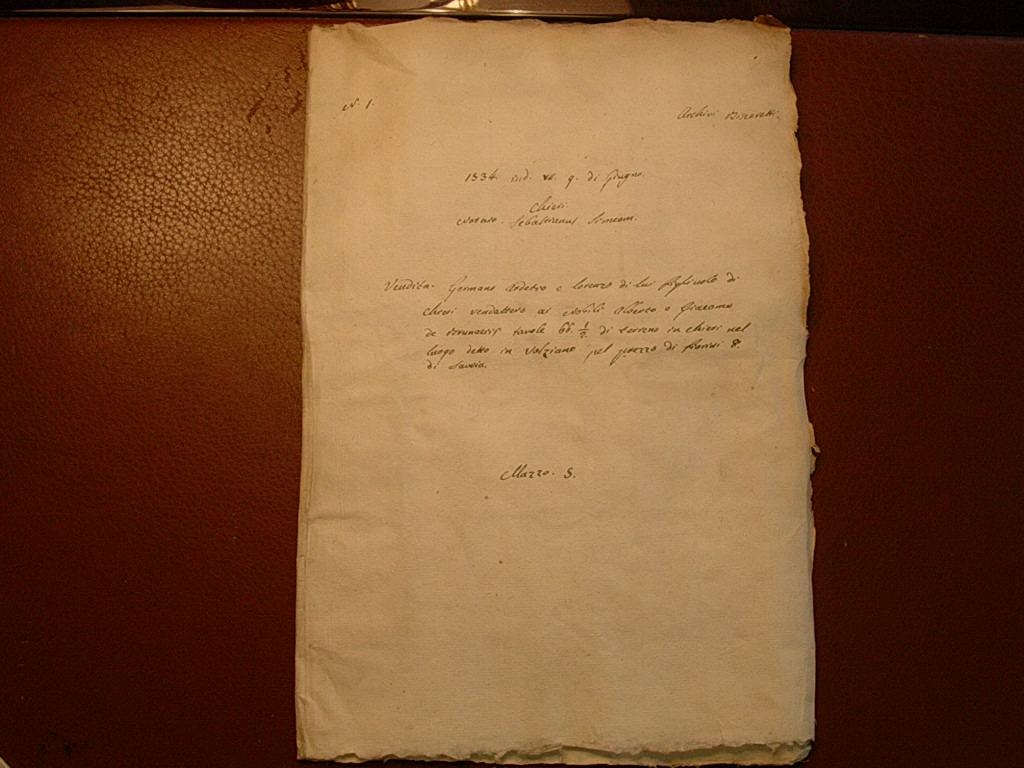 N. 1.
Archivi Biscaretti.
1334. ind. 9. di Giugno.
Chieri.
Notaro. Sebastianus Simeom.
Vendita. Germano e Lorenzo di lui figliuolo di
Chieri vendettero ai Nobili Alberto e Giacomo
de Brunaciis tavole 66. 1/2. di terreno in Chieri nel
luogo detto in Volziano pel prezzo di fiorini 8.
di Savoia.
Mazzo. S.